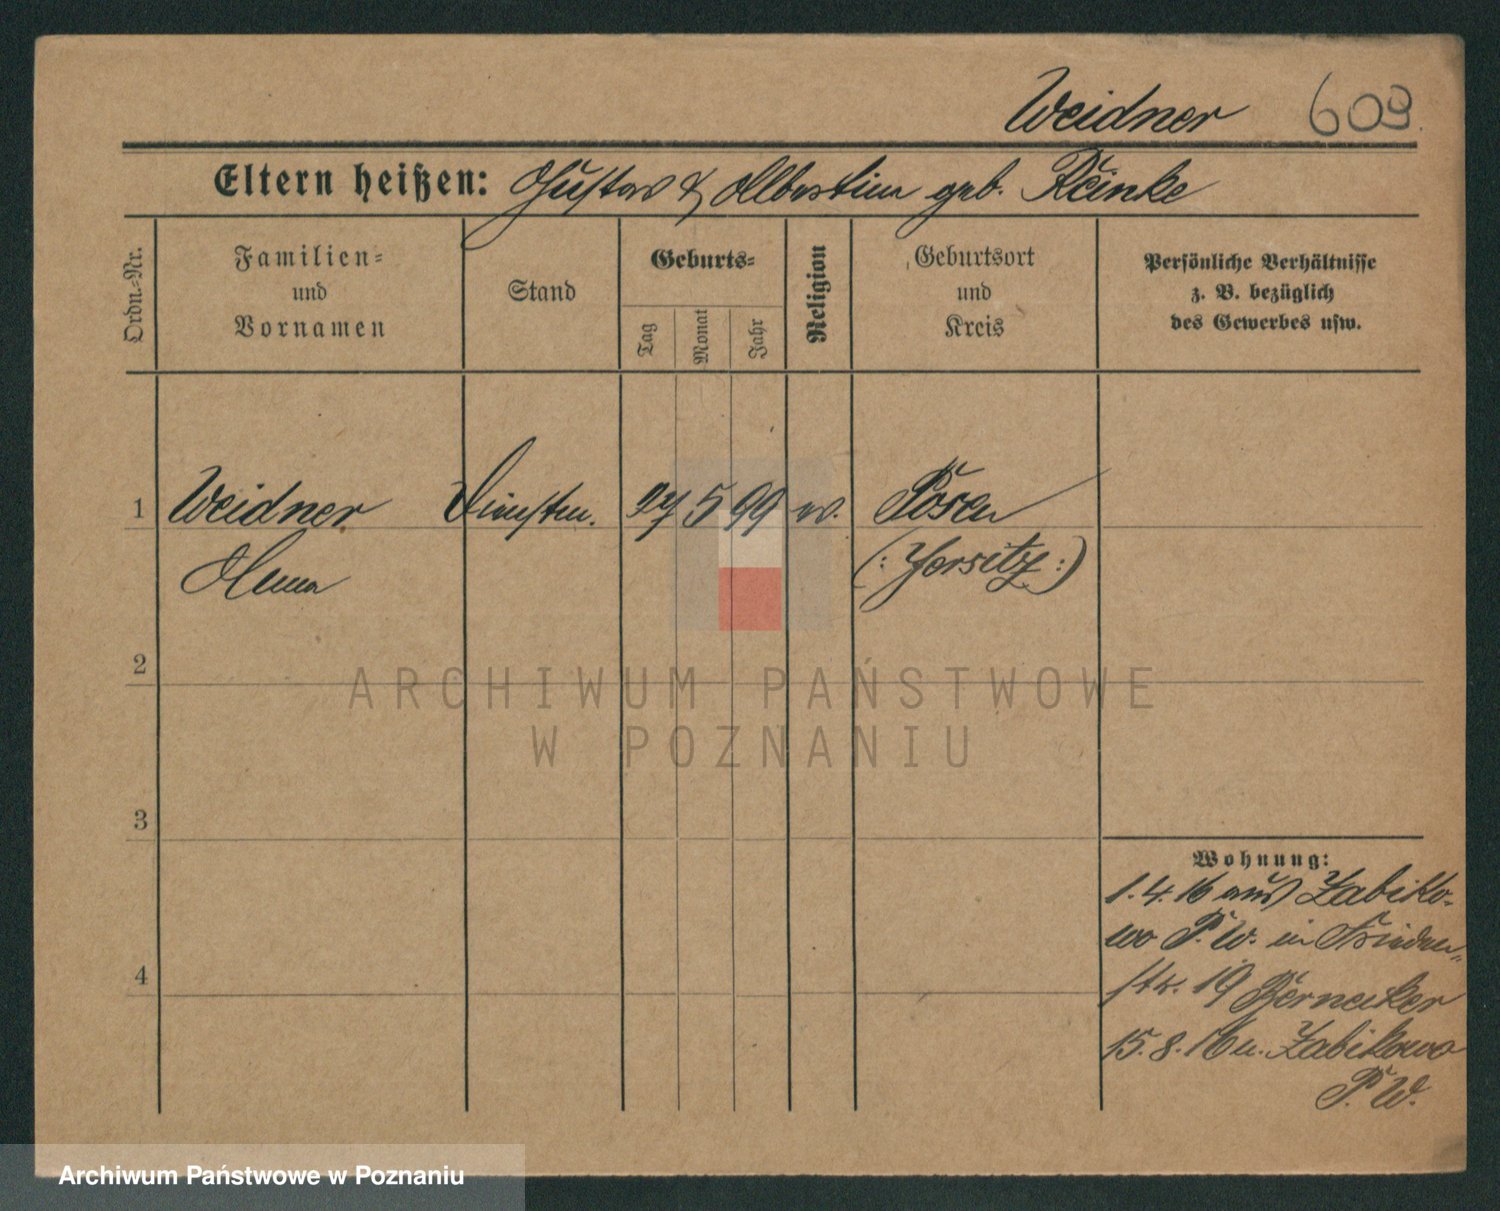 Weidner 609
Eltern heißen: Gustav & Albertine geb. Reinke
Ordn.-Nr.
Familien-
und
Vornamen
Stand
Geburts-
Tag
Monat
Jahr
Religion
Geburtsort
und
Kreis
Persönliche Verhältnisse
z. B. bezüglich
des Gewerbes usw.
1 Weidner Dienstm. 27 5 99 ev. Posen
Anna (: Jersitz :)
2
ARCHIWUM PAŃSTWOWE
W POZNANIU
3
Wohnung:
1.4.16 aus Zabiko-
4
wo P. W. in Frieden-
str. 19 Bernecker
15.8.16 n. Zabikowo
P. W.
Archiwum Państwowe w Poznaniu